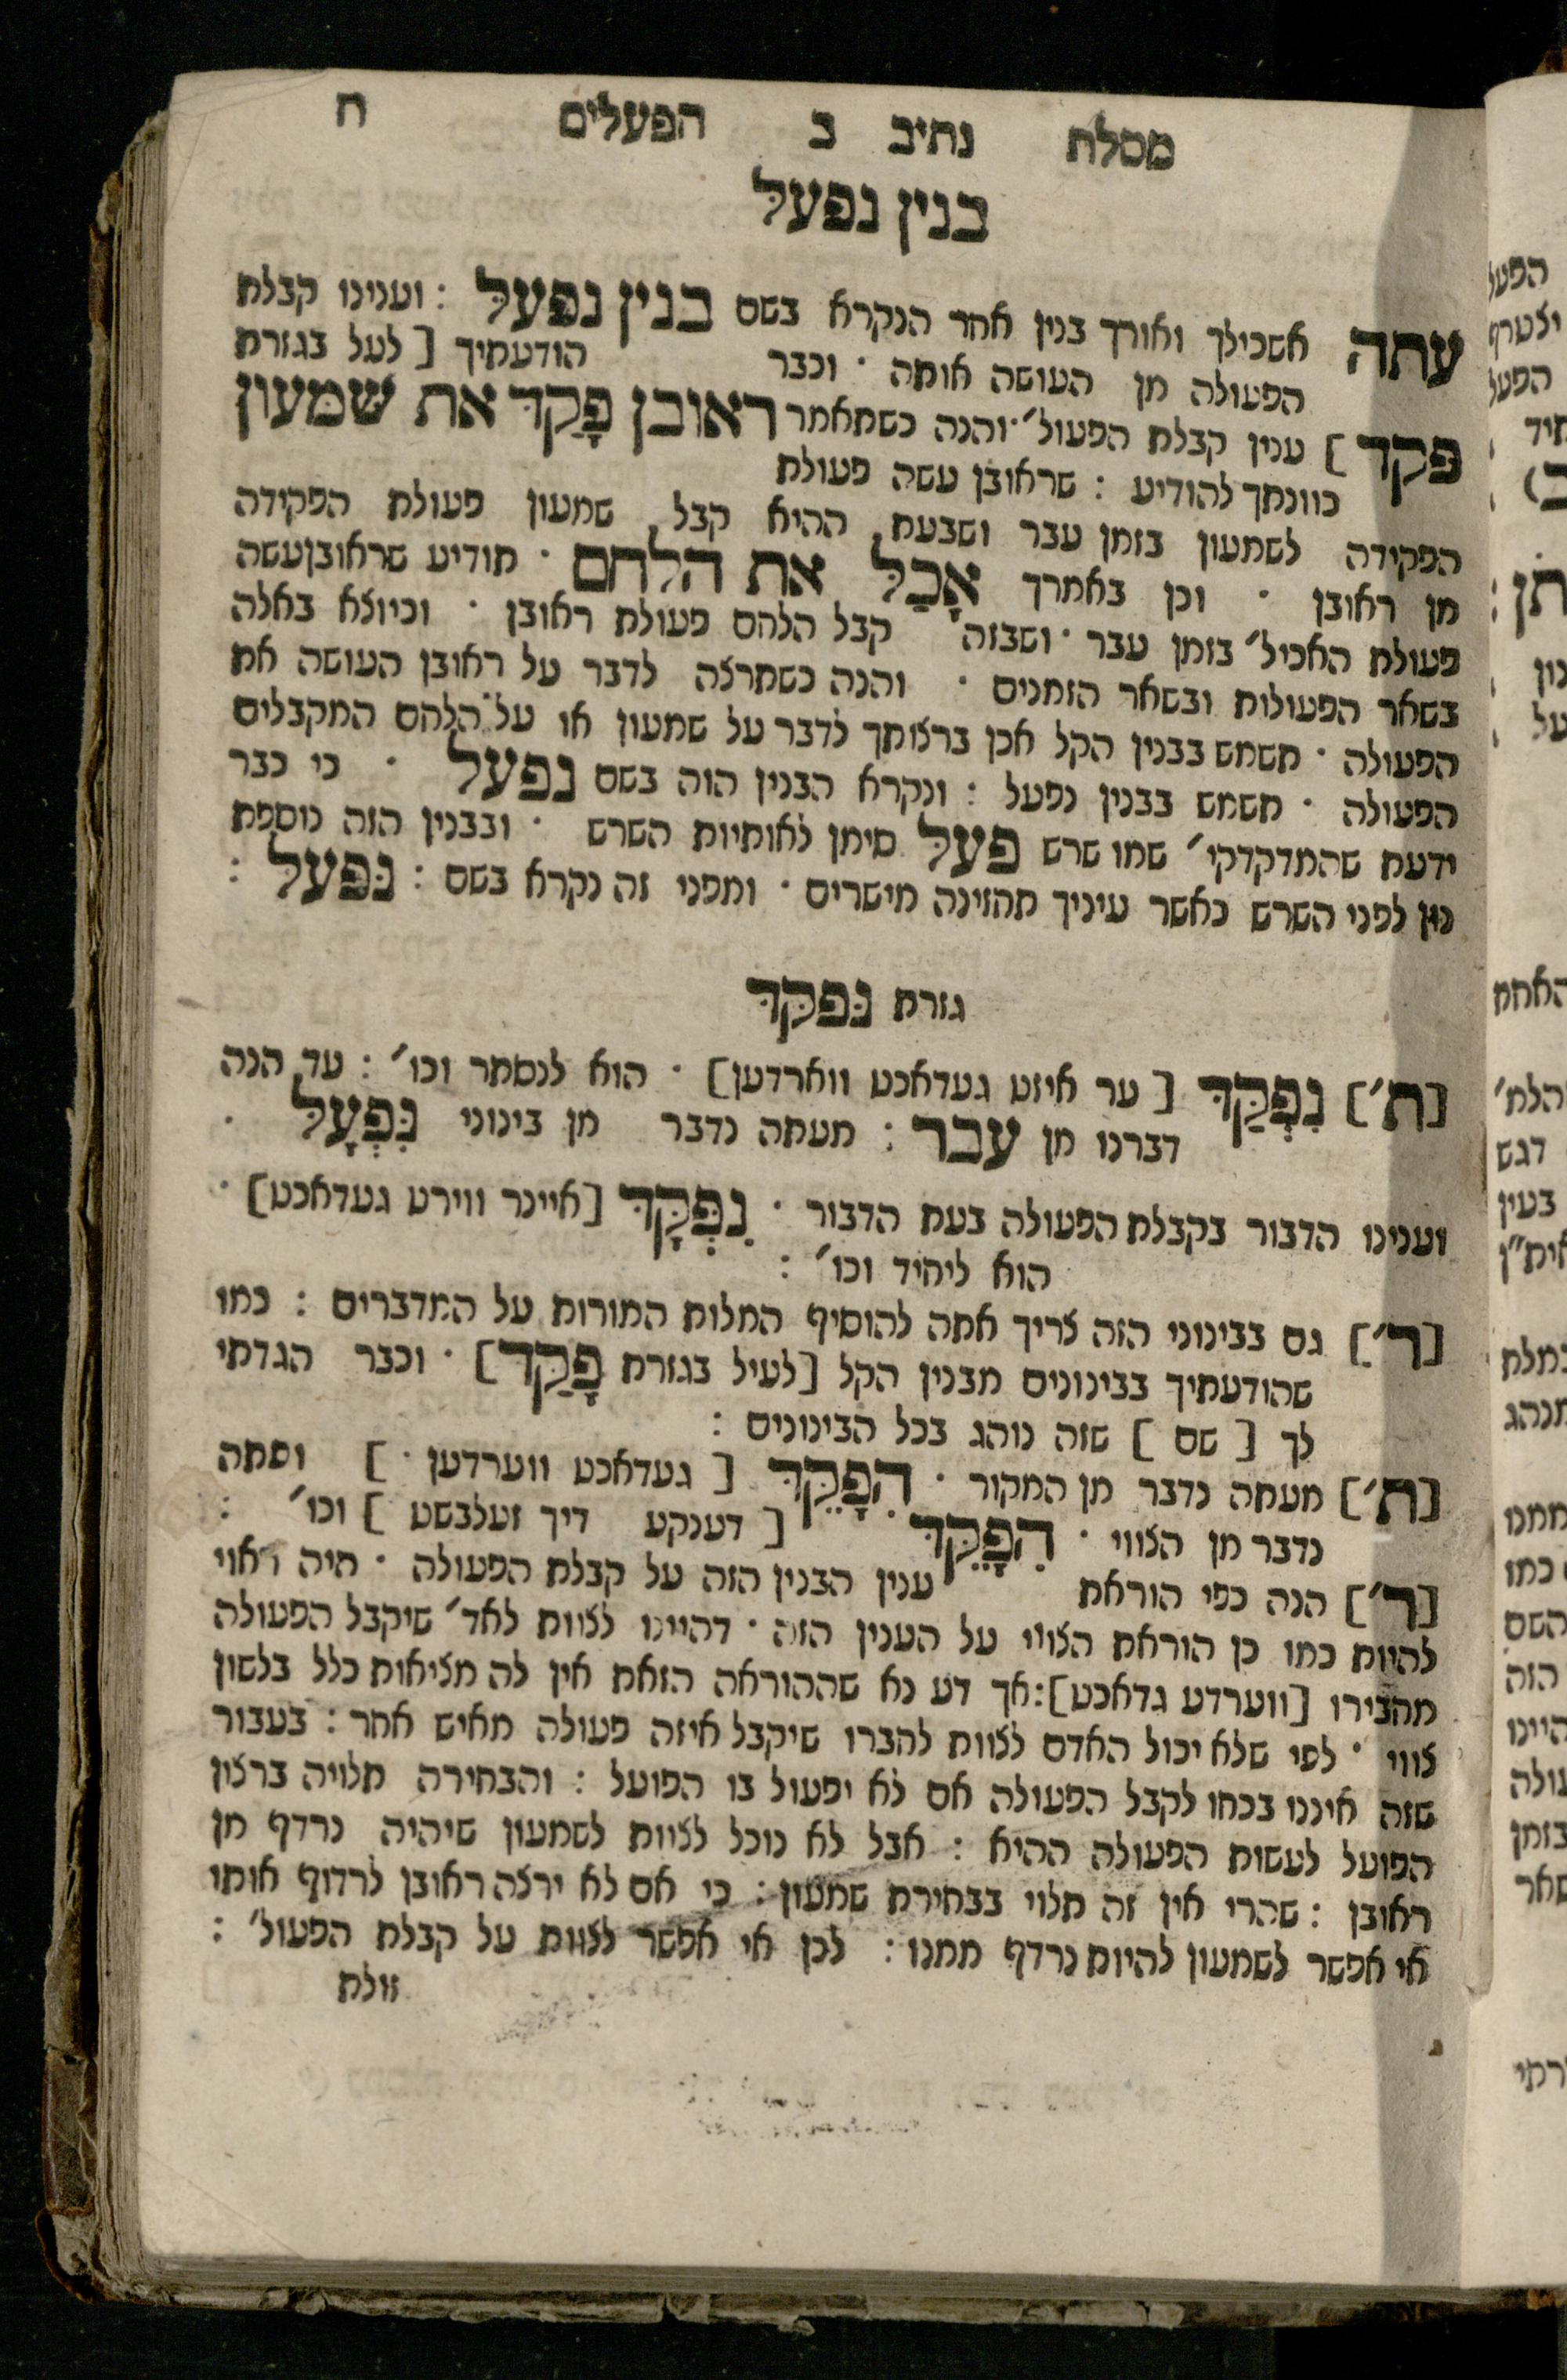 מסלת נתיב ב הפעלים ח
בנין נפעל
עתה אשכילך ואורך בנין אחר הנקרא בשם בנין נפעל : וענינו קבלת
הפעולה מן העושה אותה · וכבר הודעתיך [ לעל בגזרת
פקד ] ענין קבלת הפעול׳ · והנה כשתאמר ראובן פָּקַד את שמעון
כוונתך להודיע : שראובן עשה פעולת
הפקידה לשמעון בזמן עבר ושבעת ההיא קבל שמעון פעולת הפקידה
מן ראובן · וכן באמרך אָכַל את הלחם · תודיע שראובן עשה
פעולת האכיל׳ בזמן עבר · ושבזה קבל הלחם פעולת ראובן · וכיוצא באלה
בשאר הפעולות ובשאר הזמנים · והנה כשתרצה לדבר על ראובן העושה את
הפעולה · תשמש בבנין הקל אכן ברצותך לדבר על שמעון או על הלחם המקבלים
הפעולה · תשמש בבנין נפעל : ונקרא הבנין הזה בשם נפעל · כי כבר
ידעת שהמדקדקי׳ שמו שרש פעל סימן לאותיות השרש · ובבנין הזה נוספת
נון לפני השרש כאשר עיניך תחזינה מישרים · ומפני זה נקרא בשם : נפעל :
גזרת נפקד
[ת׳] נִפְקַד [ ער איזט געדאכט ווארדען] · הוא לנסתר וכו׳ : עד הנה
דברנו מן עבר : מעתה נדבר מן בינוני נִפְעָל ·
וענינו הדבור בקבלת הפעולה בעת הדבור · נִפְקָד [איינר ווירט געדאכט] ·
הוא ליחיד וכו׳ :
[ר׳] גם בבינוני הזה צריך אתה להוסיף המלות המורות על המדברים : כמו
שהודעתיך בבינונים מבנין הקל [לעיל בגזרת פָּקַד] · וכבר הגדתי
לך [ שם ] שזה נוהג בכל הבינונים :
[ת׳] מעתה נדבר מן המקור · הִפָּקֵד [ געדאכט ווערדען · ] ועתה
נדבר מן הצווי · הִפָּקֵד [ דענקע דיך זעלבשט ] וכו׳ :
[ר׳] הנה כפי הוראת ענין הבנין הזה על קבלת הפעולה · היה ראוי
להיות כמו כן הוראת הצווי על הענין הזה · דהיינו לצוות לאד׳ שיקבל הפעולה
מחבירו [ווערדע גדאכט] : אך דע נא שההוראה הזאת אין לה מציאות כלל בלשון
צווי · לפי שלא יכול האדם לצוות לחברו שיקבל איזה פעולה מאיש אחר : בעבור
שזה איננו בכחו לקבל הפעולה אם לא יפעול בו הפועל : והבחירה תלויה ברצון
הפועל לעשות הפעולה ההיא : אבל לא נוכל לצוות לשמעון שיהיה נרדף מן
ראובן : שהרי אין זה תלוי בבחירת שמעון : כי אם לא ירצה ראובן לרדוף אותו
אי אפשר לשמעון להיות נרדף ממנו : לכן אי אפשר לצוות על קבלת הפעול׳ :
זולת